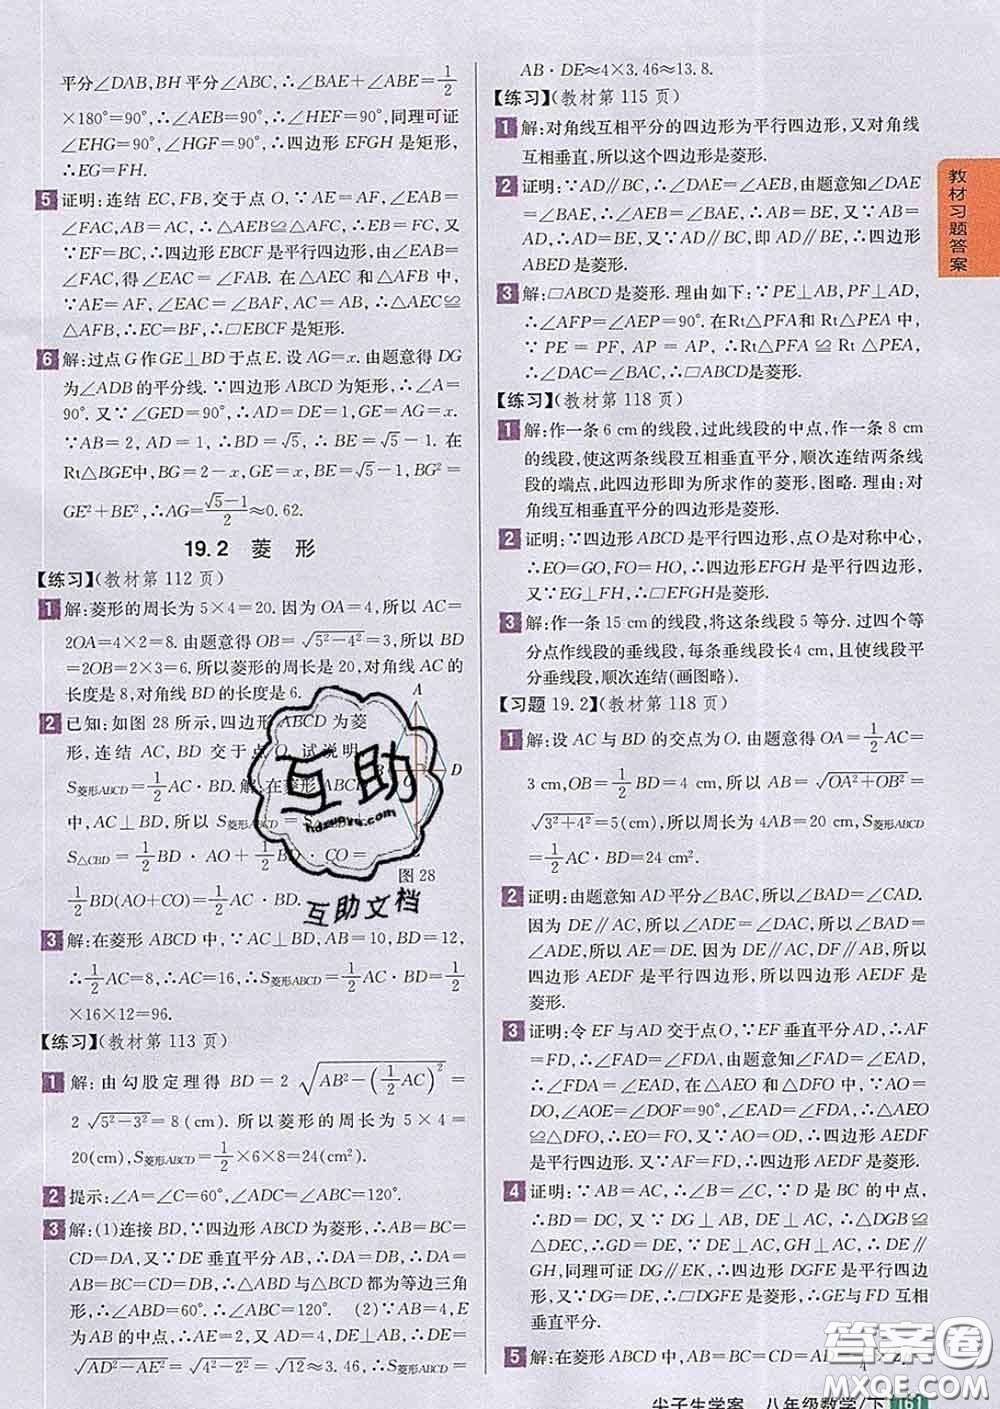 平分∠DAB,BH平分∠ABC,∴∠BAE+∠ABE=1/2
×180°=90°,∴∠AEB=90°,∴∠HEF=90°,同理可证
∠EHG=90°,∠HGF=90°,∴四边形 EFGH 是矩形,
∴EG=FH.
5 证明:连结 EC,FB,交于点 O,∵AE=AF,∠EAB=
∠FAC,AB=AC,∴△AEB≌△AFC,∴EB=FC,又
∵EF=BC,∴四边形 EBCF 是平行四边形,由∠EAB=
∠FAC,得∠EAC=∠FAB. 在△AEC 和△AFB 中,
∵AE=AF,∠EAC=∠FAB,AC=AB,∴△AEC≌
△AFB,∴EC=BF,∴□EBCF是矩形.
6 解:过点G作GE⊥BD于点E.设AG=x.由题意得 DG
为∠ADB的平分线.∵四边形 ABCD 为矩形,∴∠A=
90°.又∵∠GED=90°,∴AD=DE=1,GE=AG=x.
∵AB=2,AD=1,∴BD=√5,∴BE=√5-1. 在
Rt△BGE中,BG=2-x,GE=x,BE=√5-1,BG²=
GE²+BE²,∴AG=(√5-1)/2≈0.62.
19.2 菱 形
【练习】(教材第 112 页)
1 解:菱形的周长为 5×4=20. 因为 OA=4,所以 AC=
2OA=4×2=8. 由题意得 OB=√(5²-4²)=3,所以 BD
=2OB=2×3=6.所以菱形的周长是 20,对角线 AC 的
长度是 8,对角线 BD 的长度是 6.
2 已知:如图 28 所示,四边形 ABCD 为菱
形,连结 AC, BD 交于点 O. 试说明
S菱形ABCD=1/2AC·BD.解:在菱形ABCD
中,AC⊥BD,∴S菱形ABCD=S△ABD+
S△CBD=1/2BD·AO+1/2BD·CO=
1/2BD(AO+CO)=1/2BD·AC.
A
B
D
图 28
3 解:在菱形 ABCD 中,∵AC⊥BD,AB=10,BD=12,
∴1/2AC=8,∴AC=16,∴S菱形ABCD=1/2AC·BD=1/2
×16×12=96.
【练习】(教材第 113 页)
1 解:由勾股定理得 BD=2√(AB²-(1/2AC)²)=
2√(5²-3²)=8(cm). 所以菱形的周长为 5×4=
20(cm),S菱形ABCD=1/2×6×8=24(cm²).
2 提示:∠A=∠C=60°,∠ADC=∠ABC=120°.
3 解:(1)连接 BD,∵四边形 ABCD 为菱形,∴AB=BC=
CD=DA,又∵DE 垂直平分 AB,∴DA=DB,∴DA=
AB=BC=CD=DB,∴△ABD与△BCD都为等边三角
形,∴∠ABD=60°,∴∠ABC=120°. (2)∵AB=4,E
为AB的中点,∴AE=2,又∵DE⊥AB,∴DE=
√(AD²-AE²)=√(4²-2²)=√12≈3.46,∴S菱形ABCD=
AB·DE≈4×3.46≈13.8.
【练习】(教材第 115 页)
1 解:对角线互相平分的四边形为平行四边形,又对角线
互相垂直,所以这个四边形是菱形.
2 证明:∵AD∥BC,∴∠DAE=∠AEB,由题意知∠DAE
=∠BAE,∴∠AEB=∠BAE,∴AB=BE. 又∵AB=
AD,∴AD=BE,又∵AD∥BC,即AD∥BE,∴四边形
ABED 是菱形.
3 解:□ABCD是菱形. 理由如下:∵PE⊥AB,PF⊥AD,
∴∠AFP=∠AEP=90°.在Rt△PFA和Rt△PEA 中,
∵PE=PF, AP=AP, ∴Rt△PFA≌Rt△PEA,
∴∠DAC=∠BAC,∴□ABCD是菱形.
【练习】(教材第 118 页)
1 解:作一条 6 cm 的线段,过此线段的中点,作一条 8 cm
的线段,使这两条线段互相垂直平分,顺次连结两条线
段的端点,此四边形即为所求作的菱形,图略. 理由:对
角线互相垂直平分的四边形是菱形.
2 证明:∵四边形ABCD是平行四边形,点O是对称中心,
∴EO=GO,FO=HO,∴四边形EFGH 是平行四边形,
又∵EG⊥FH,∴□EFGH是菱形.
3 解:作一条 15 cm 的线段,将这条线段 5 等分. 过四个等
分点作线段的垂线段,每条垂线段长4 cm,且使线段平
分垂线段,顺次连结(画图略).
【习题 19.2】(教材第 118 页)
1 解:设 AC 与 BD 的交点为O. 由题意得 OA=1/2AC=
3 cm,OB=1/2BD=4 cm. 所以 AB=√(OA²+OB²)=
√(3²+4²)=5(cm),所以周长为 4AB=20 cm,S菱形ABCD
=1/2AC×BD=24 cm².
2 证明:由题意知 AD平分∠BAC,所以∠BAD=∠CAD.
因为 DE∥AC,所以∠ADE=∠DAC,所以∠BAD=
∠ADE,所以AE=DE. 因为 DE∥AC,DF∥AB,所以
四边形 AEDF 是平行四边形,所以四边形 AEDF 是
菱形.
3 证明:令 EF 与 AD 交于点 O,∵EF 垂直平分 AD,∴AF
=FD,∴∠FAD=∠FDA,由题意知∠FAD=∠EAD,
∴∠FDA=∠EAD. 在△AEO 和△DFO 中,∵AO=
DO,∠AOE=∠DOF=90°,∠EAD=∠FDA,∴△AEO
≌△DFO,∴EO=FO,又∵AO=DO,∴四边形 AEDF
是平行四边形. 又∵AF=FD,∴四边形AEDF是菱形.
4 证明:∵AB=AC,∴∠B=∠C,∵D是BC的中点,
∴BD=DC,又∵DG⊥AB,DE⊥AC,∴△DGB≌
△DEC,∴DG=DE,∵DE⊥AC,GH⊥AC,∴DE∥
GH,同理可证 DG∥EK,∴四边形 DGFE 是平行四边
形,又∵DG=DE,∴□DGFE 是菱形,∴GE与FD 互相
垂直平分.
5 解:在菱形 ABCD 中,AB=BC=CD=AD
教材习题答案
互助
hdzuoye.com
互助文档
答案圈
尖子生学案 八年级数学/下 161